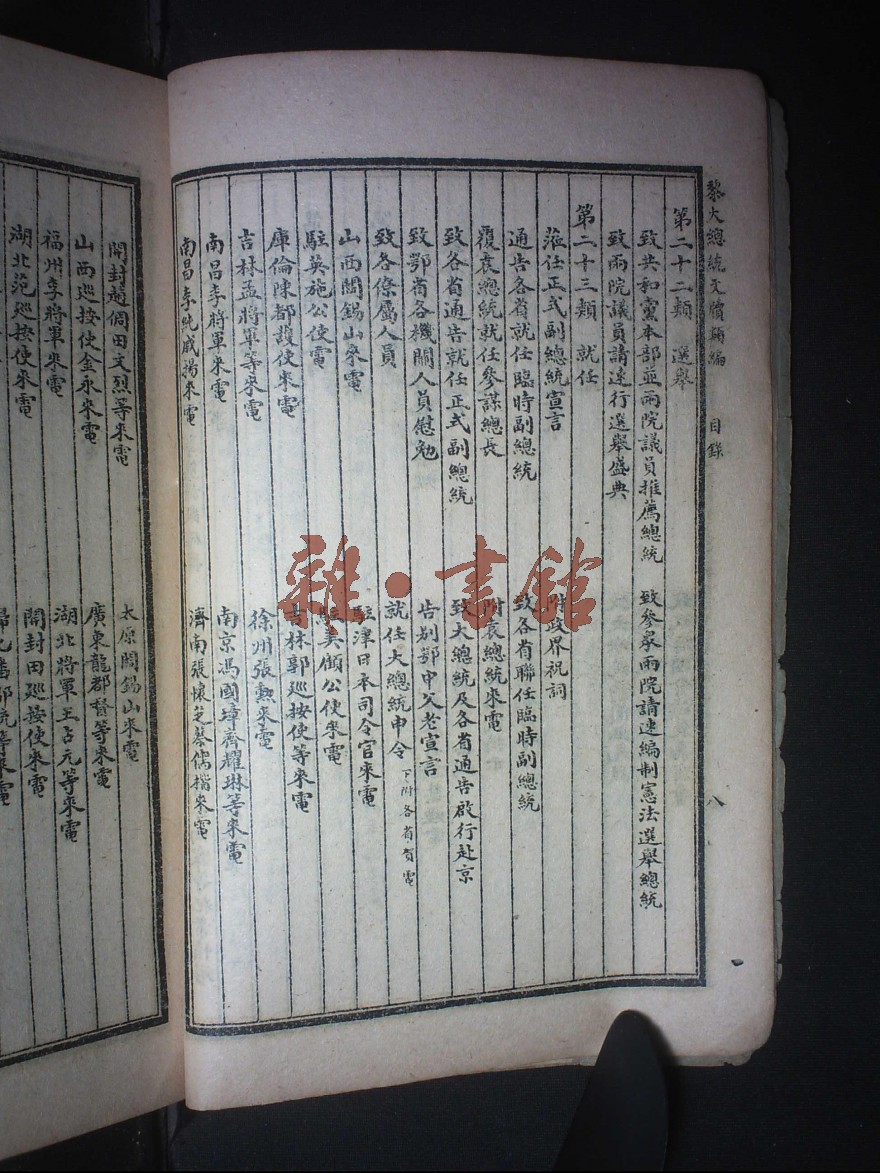 黎大總統文牘類編　目錄　八
第二十二類　選舉
致共和黨本部並兩院議員推薦總統　致參眾兩院請速編制憲法選舉總統
致兩院議員請速行選舉盛典
第二十三類　就任
蒞任正式副總統宣言　附政界祝詞
通告各省就任臨時副總統　致各省聯任臨時副總統
覆袁總統就任參謀總長　附袁總統來電
致各省通告就任正式副總統　致大總統及各省通告啟行赴京
致鄂省各機關人員慰勉　告別鄂中父老宣言
致各僚屬人員　就任大總統申令 下附各省賀電
山西閻錫山來電　駐津日本司令官來電
駐英施公使電　駐美顧公使來電
庫倫陳都護使來電　吉林郭巡按使等來電
吉林孟將軍等來電　徐州張勳來電
南昌李將軍來電　南京馮國璋齊耀琳等來電
南昌李純戚揚來電　濟南張懷芝蔡儒楷來電
開封趙倜田文烈等來電　太原閻錫山來電
山西巡按使金永來電　廣東龍都督等來電
福州李將軍來電　湖北將軍王占元等來電
湖北范巡按使來電　開封田巡按使來電
歸化潘都統等來電
雜·書館